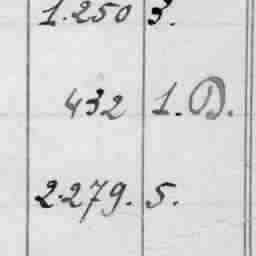 1.250 3.
432 1. D.
2.279. 5.